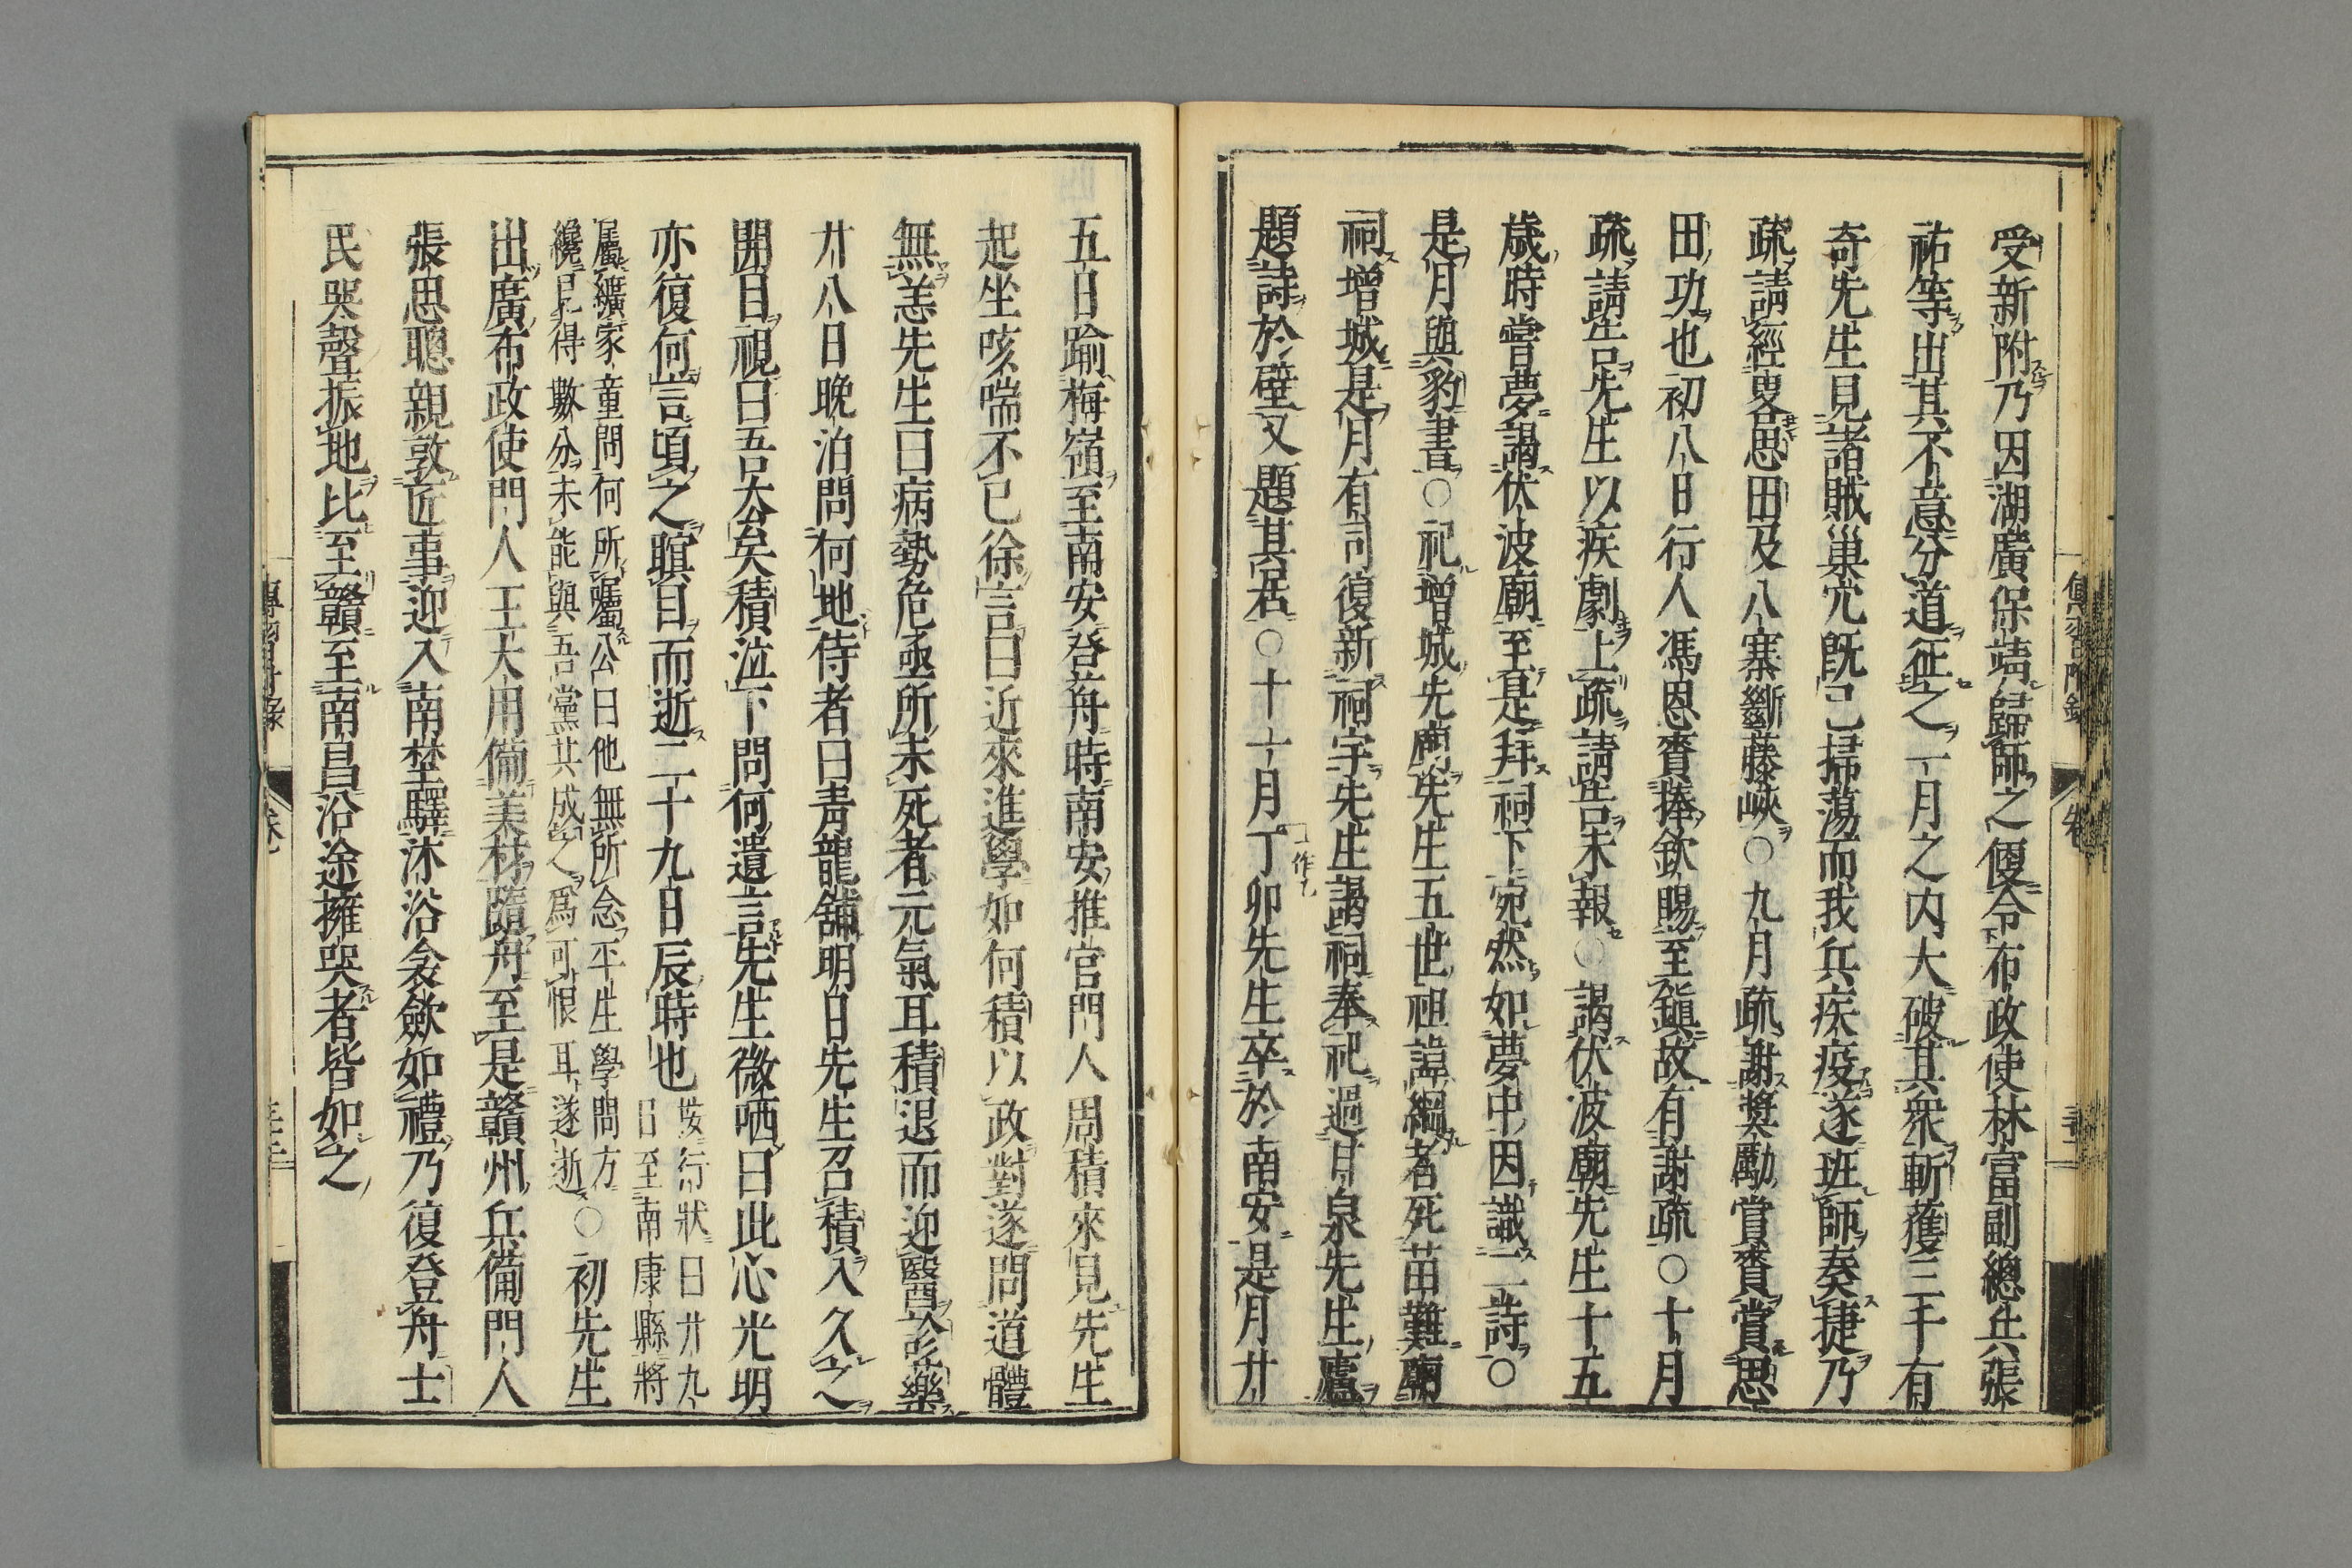 受新附乃因湖廣保靖歸師之便令布政使林富副總兵張
祐等出其不意分道征之一月之内大破其衆斬獲三千有
奇先生見諸賊巢穴既已掃蕩而我兵疾疫遂班師奏捷乃
疏請經畧思田及八寨斷藤峽○九月疏謝奨勵賞賚賞思
田功也初八日行人馮恩賚捧欽賜至鎮故有謝疏○十月
疏請告先生以疾劇上疏請告未報○謁伏波廟先生十五
歳時嘗夢謁伏波廟至是拜祠下宛然如夢中因識二詩○
是月與豹書○祀增城先廟先生五世祖諱綱者死苗難廟
祠增城是月有司復新祠宇先生謁祠奉祀過甘泉先生廬
題詩於壁又題其居○十一月丁卯先生卒於南安是月廿
五日踰梅嶺至南安登舟時南安推官門人周積來見先生
起坐咳喘不已徐言曰近來進學如何積以政對遂問道體
無恙先生曰病勢危亟所未死者元氣耳積退而迎醫診藥
廿八日晚泊問何地侍者曰青龍舖明日先生召積入久之
開目視曰吾去矣積泣下問何遺言先生微哂曰此心光明
亦復何言頃之瞑目而逝二十九日辰時也
按行狀曰廿九
日至南康縣將
屬纊家童問何所囑公曰他無所念平生學問方
纔見得數分未能與吾黨共成之爲可恨耳遂逝○初先生
出廣布政使門人王大用備美材隨舟至是贛州兵備門人
張思聰親敦匠事迎入南埜驛沐浴衾歛如禮乃復登舟士
民哭聲振地比至贛至南昌沿途擁哭者皆如之
傳習附錄
卷